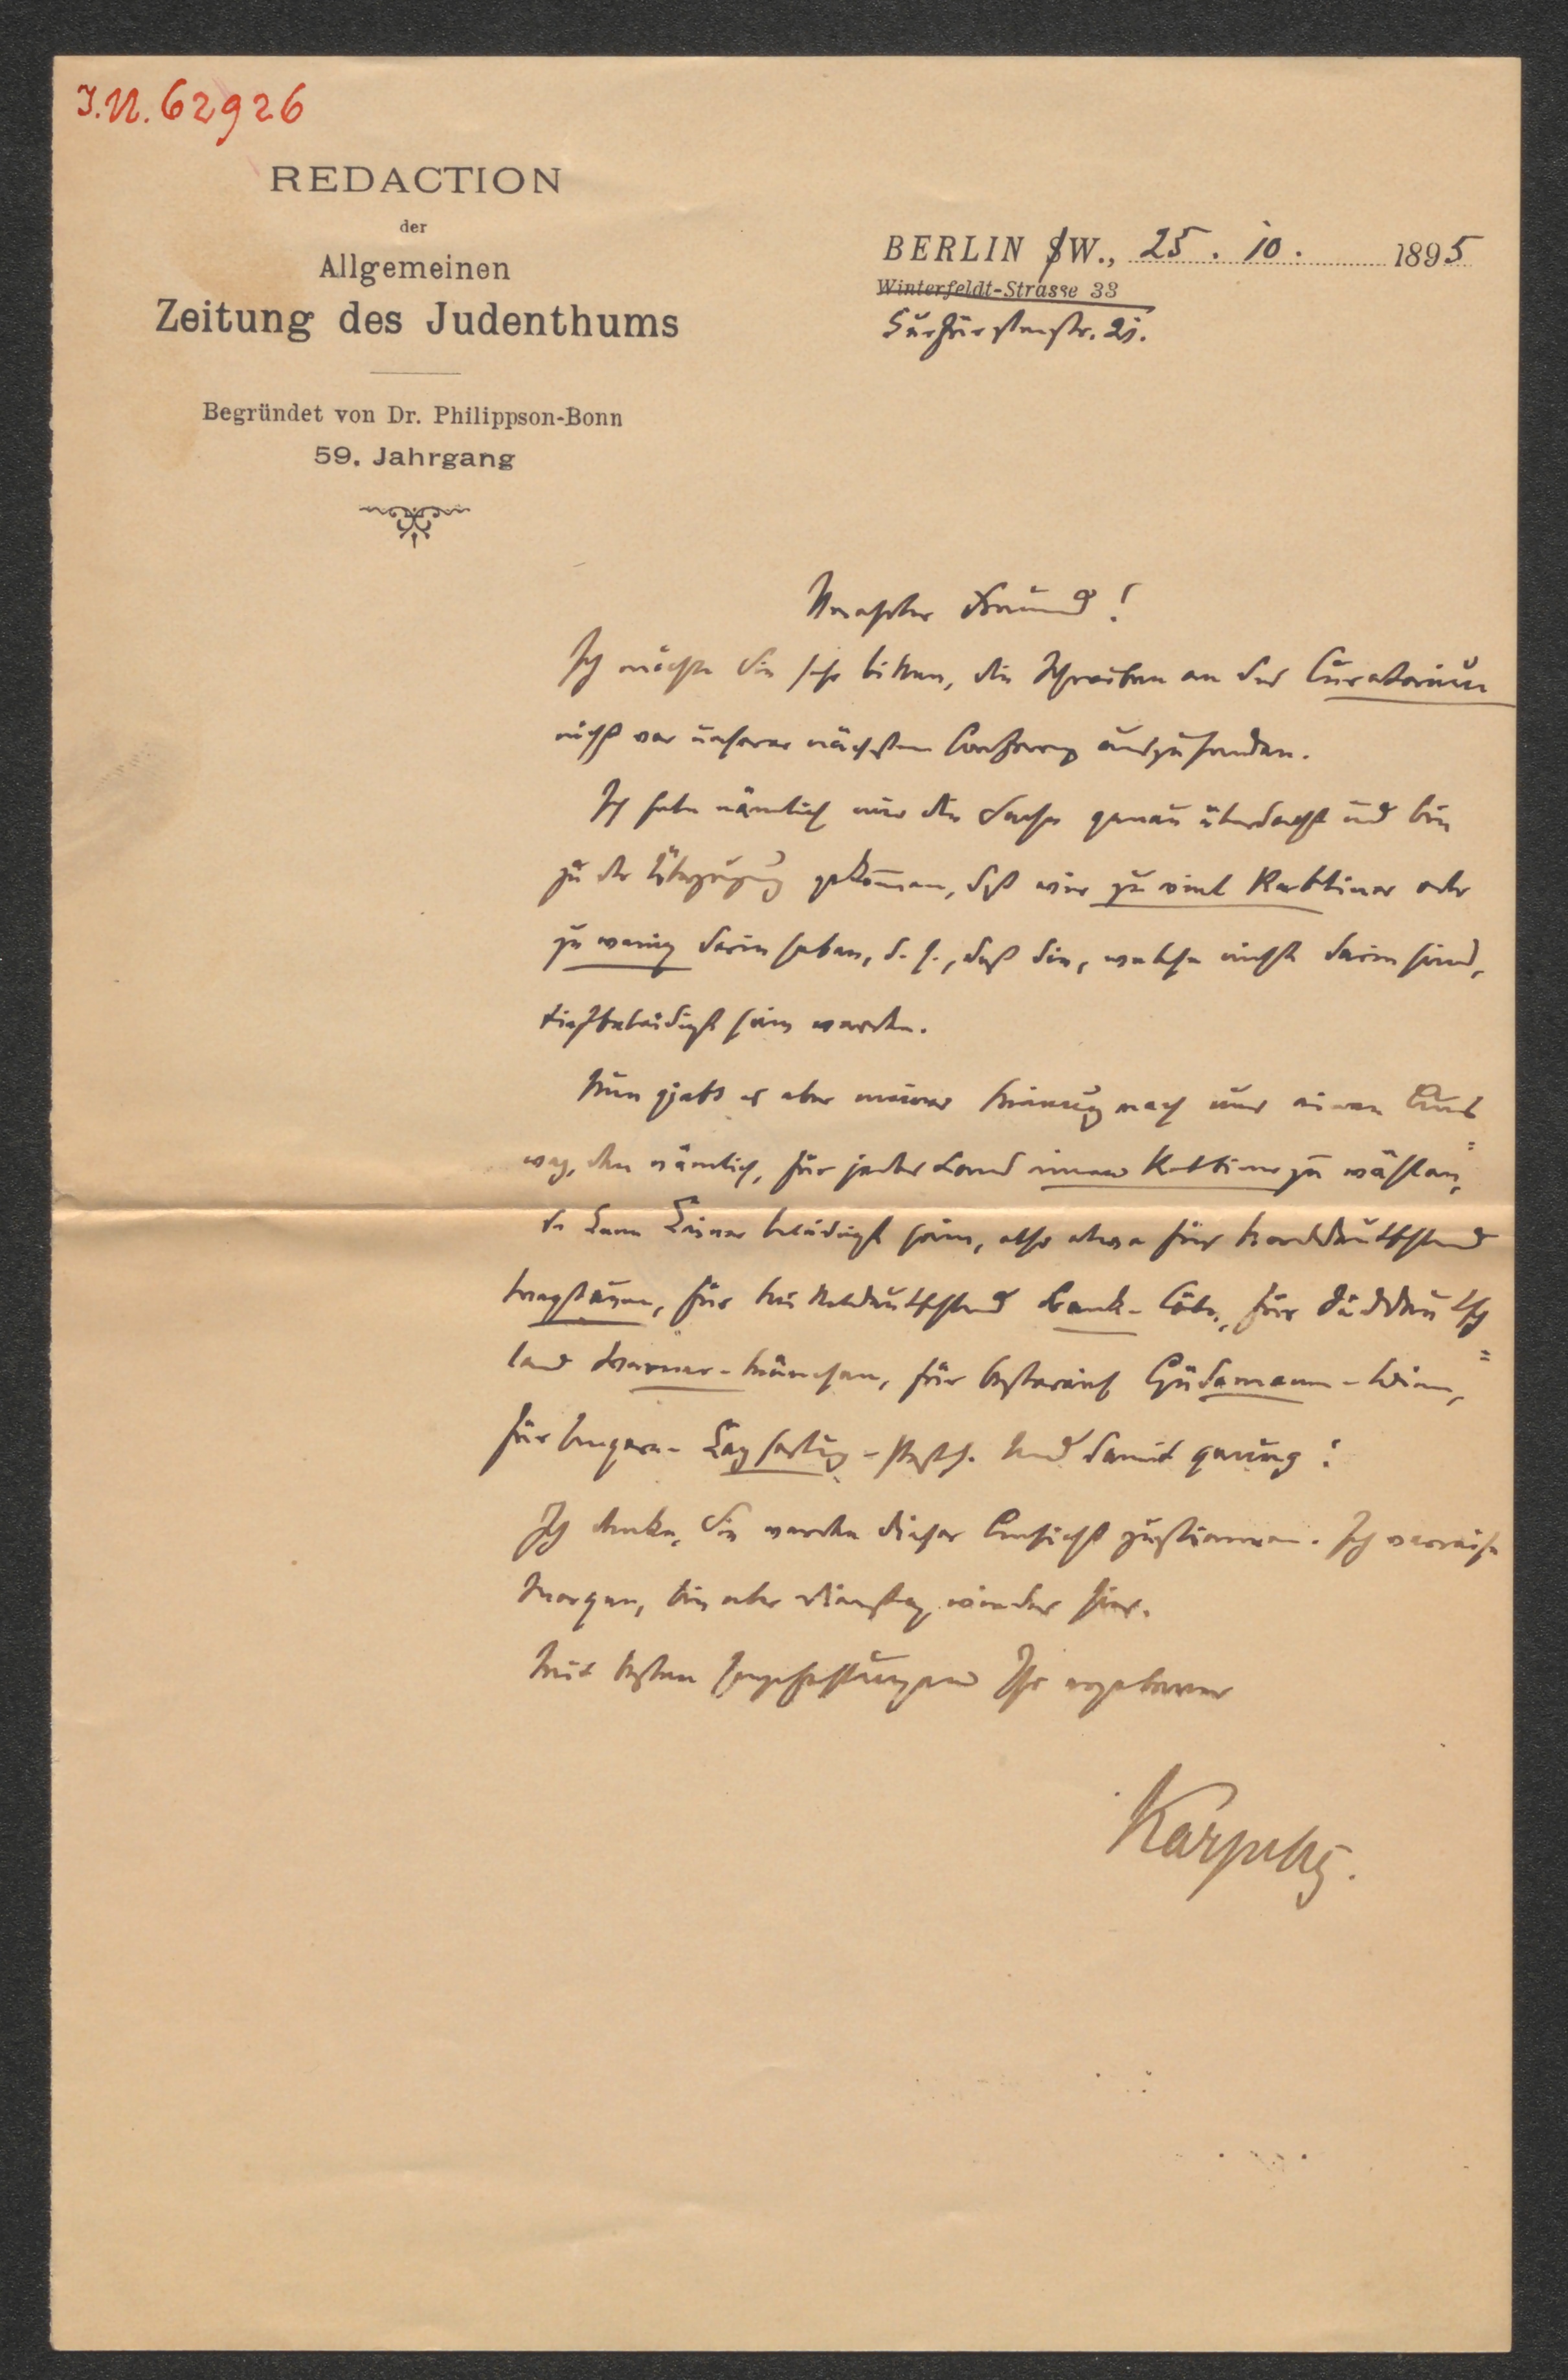 I.N. 62926
REDACTION
der
Allgemeinen
Zeitung des Judenthums
Begründet von Dr. Philippson-Bonn
59. Jahrgang
BERLIN SW., 25. 10. 1895
Winterfeldt-Strasse 33
Kurfürstenstr. 21.
Verehrter Freund!
Ich möchte Sie sehr bitten, die Schreiben an das Curatorium
nicht vor unserer nächsten Conferenz auszusenden.
Ich habe nämlich mir die Sache genau überdacht und bin
zu der Überzeugung gekommen, daß wir zu viel Rabbiner oder
zu wenig darin haben, d. h., daß die, welche nicht darin sind,
tiefbeleidigt sein werden.
Nun giebts es aber meiner Meinung nach nur einen Aus=
weg, den nämlich, für jedes Land einen Rabbiner zu wählen,
da kann Keiner beleidigt sein, also etwa für Norddeutschland
Maybaum, für Mitteldeutschland Frank-Cöln, für Süddeutsch=
land Werner-München, für Österreich Güdemann-Wien,
für Ungarn- Kayserling-Pesth. Und damit genug!
Ich denke, Sie werden dieser Ansicht zustimmen. Ich verreise
Morgen, bin aber Dienstag wieder hier.
Mit besten Empfehlungen Ihr ergebener
Karpeles.